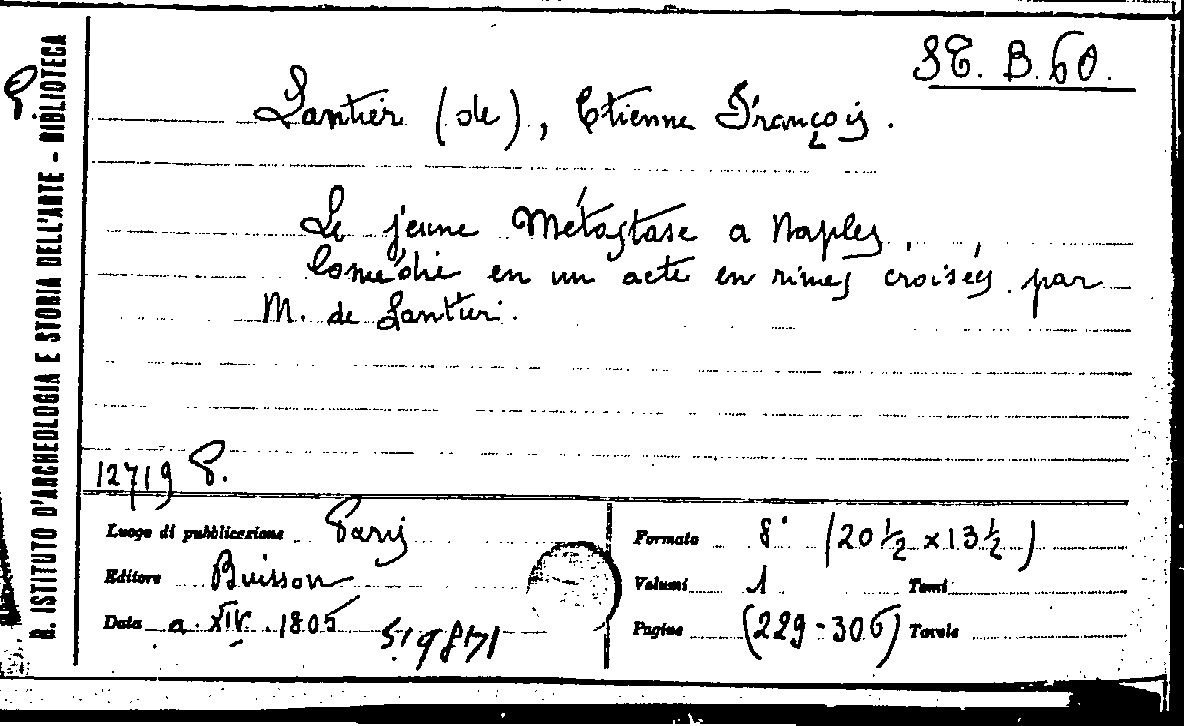 R. ISTITUTO D'ARCHEOLOGIA E STORIA DELL'ARTE - BIBLIOTECA
B. 60.
Lantier (de), Etienne François.
Le jeune Métastase a Naples,
Comédie en un acte en rimes croisés, par
M. de Lantier.
12719
Luogo di pubblicazione Paris
Editore Buisson
Data a. XIV. 1805
Formato 8° (20 ½ x 13 ½)
Volumi 1 Tomi
Pagine (229-306) Tavole